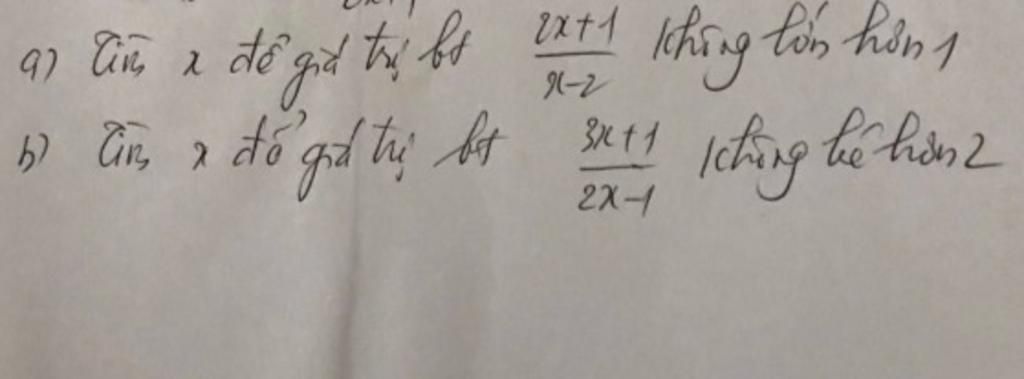 a) Tìm x để giá trị bt 2x+1/x-2 không lớn hơn 1
b) Tìm x để giá trị bt 3x+1/2x-1 không bé hơn 2